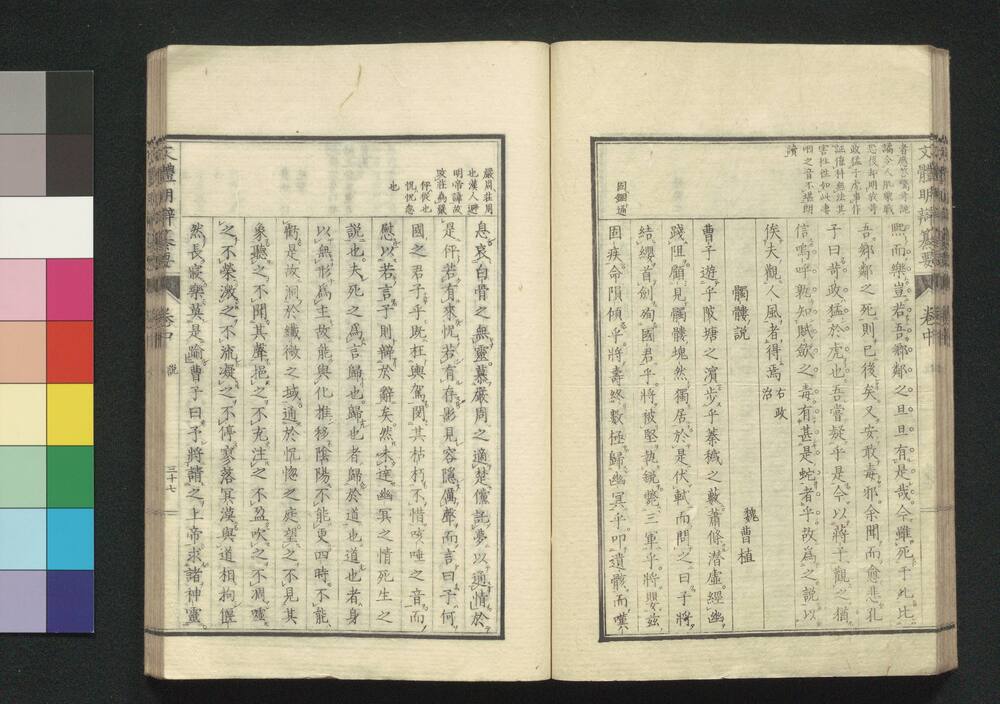 熙而樂豈若吾鄉鄰之旦旦有是哉今雖死乎此比
吾鄉鄰之死則已後矣又安敢毒邪余聞而愈悲孔
子曰苛政猛於虎也吾嘗疑乎是今以蔣氏觀之猶
信嗚呼孰知賦斂之毒有甚是蛇者乎故為之說以
俟夫觀人風者得焉
右政治
髑髏說
魏曹植
曹子遊乎陂塘之濱步乎蓁穢之藪蕭條潛虛經幽
踐阻顧見髑髏塊然獨居於是伏軾而問之曰子將
結纓首劍殉國君乎將被堅執銳斃三軍乎將嬰茲
固疾命隕傾乎將壽終數極歸幽冥乎叩遺骸而嘆
固錮通
文體明辯纂要
卷中
息哀白骨之無靈慕嚴周之適楚儻託夢以通情於
是伻若有來怳若有存影見容隱厲聲而言曰子何
國之君子乎既枉輿駕閔其枯朽不惜咳唾之音而
慰以若言子則辯於辭矣然未達幽冥之情死生之
說也夫死之為言歸也歸也者歸於道也道也者身
以無形為主故能與化推移陰陽不能更四時不能
虧是故洞於纖微之域通於怳惚之庭望之不見其
象聽之不聞其聲挹之不充注之不盈吹之不凋噓
之不榮激之不流凝之不停寥落冥漠與道相拘偃
然長寢樂莫是踰曹子曰予將請之上帝求諸神靈
嚴周莊周
也漢人避
明帝諱故
改莊為嚴
伻從也
怳怳忽
也
文體明辯纂要
卷中
說
三十七